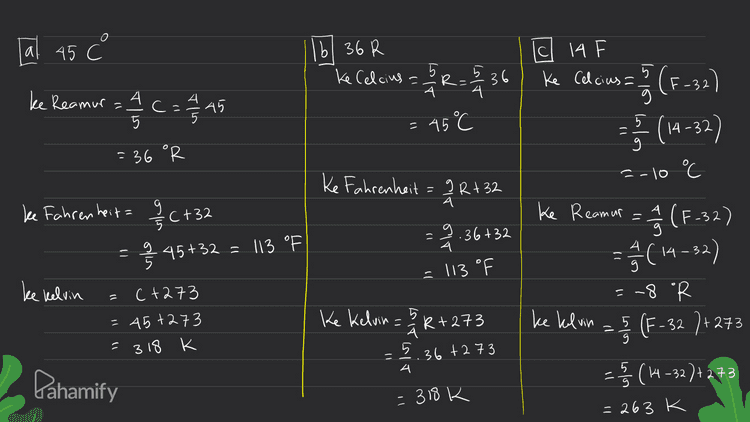 a 45 C°
ke Reamur = 4/5 C = 4/5 45
= 36 °R
ke Fahrenheit = 9/5 C+32
= 9/5 45+32 = 113 °F
ke kelvin = C+273
= 45+273
= 318 K
b 36 R
ke Celcius = 5/4 R = 5/4 36
= 45°C
Ke Fahrenheit = 9/4 R+32
= 9/4 .36+32
= 113 °F
Ke Kelvin = 5/4 R+273
= 5/4 .36 +273
= 318 K
c 14 F
ke Celcius = 5/9 (F-32)
= 5/9 (14-32)
= -10 °C
ke Reamur = 4/9 (F-32)
= 4/9 (14-32)
= -8 °R
ke kelvin = 5/9 (F-32)+273
= 5/9 (14-32)+273
= 263 K
Pahamify